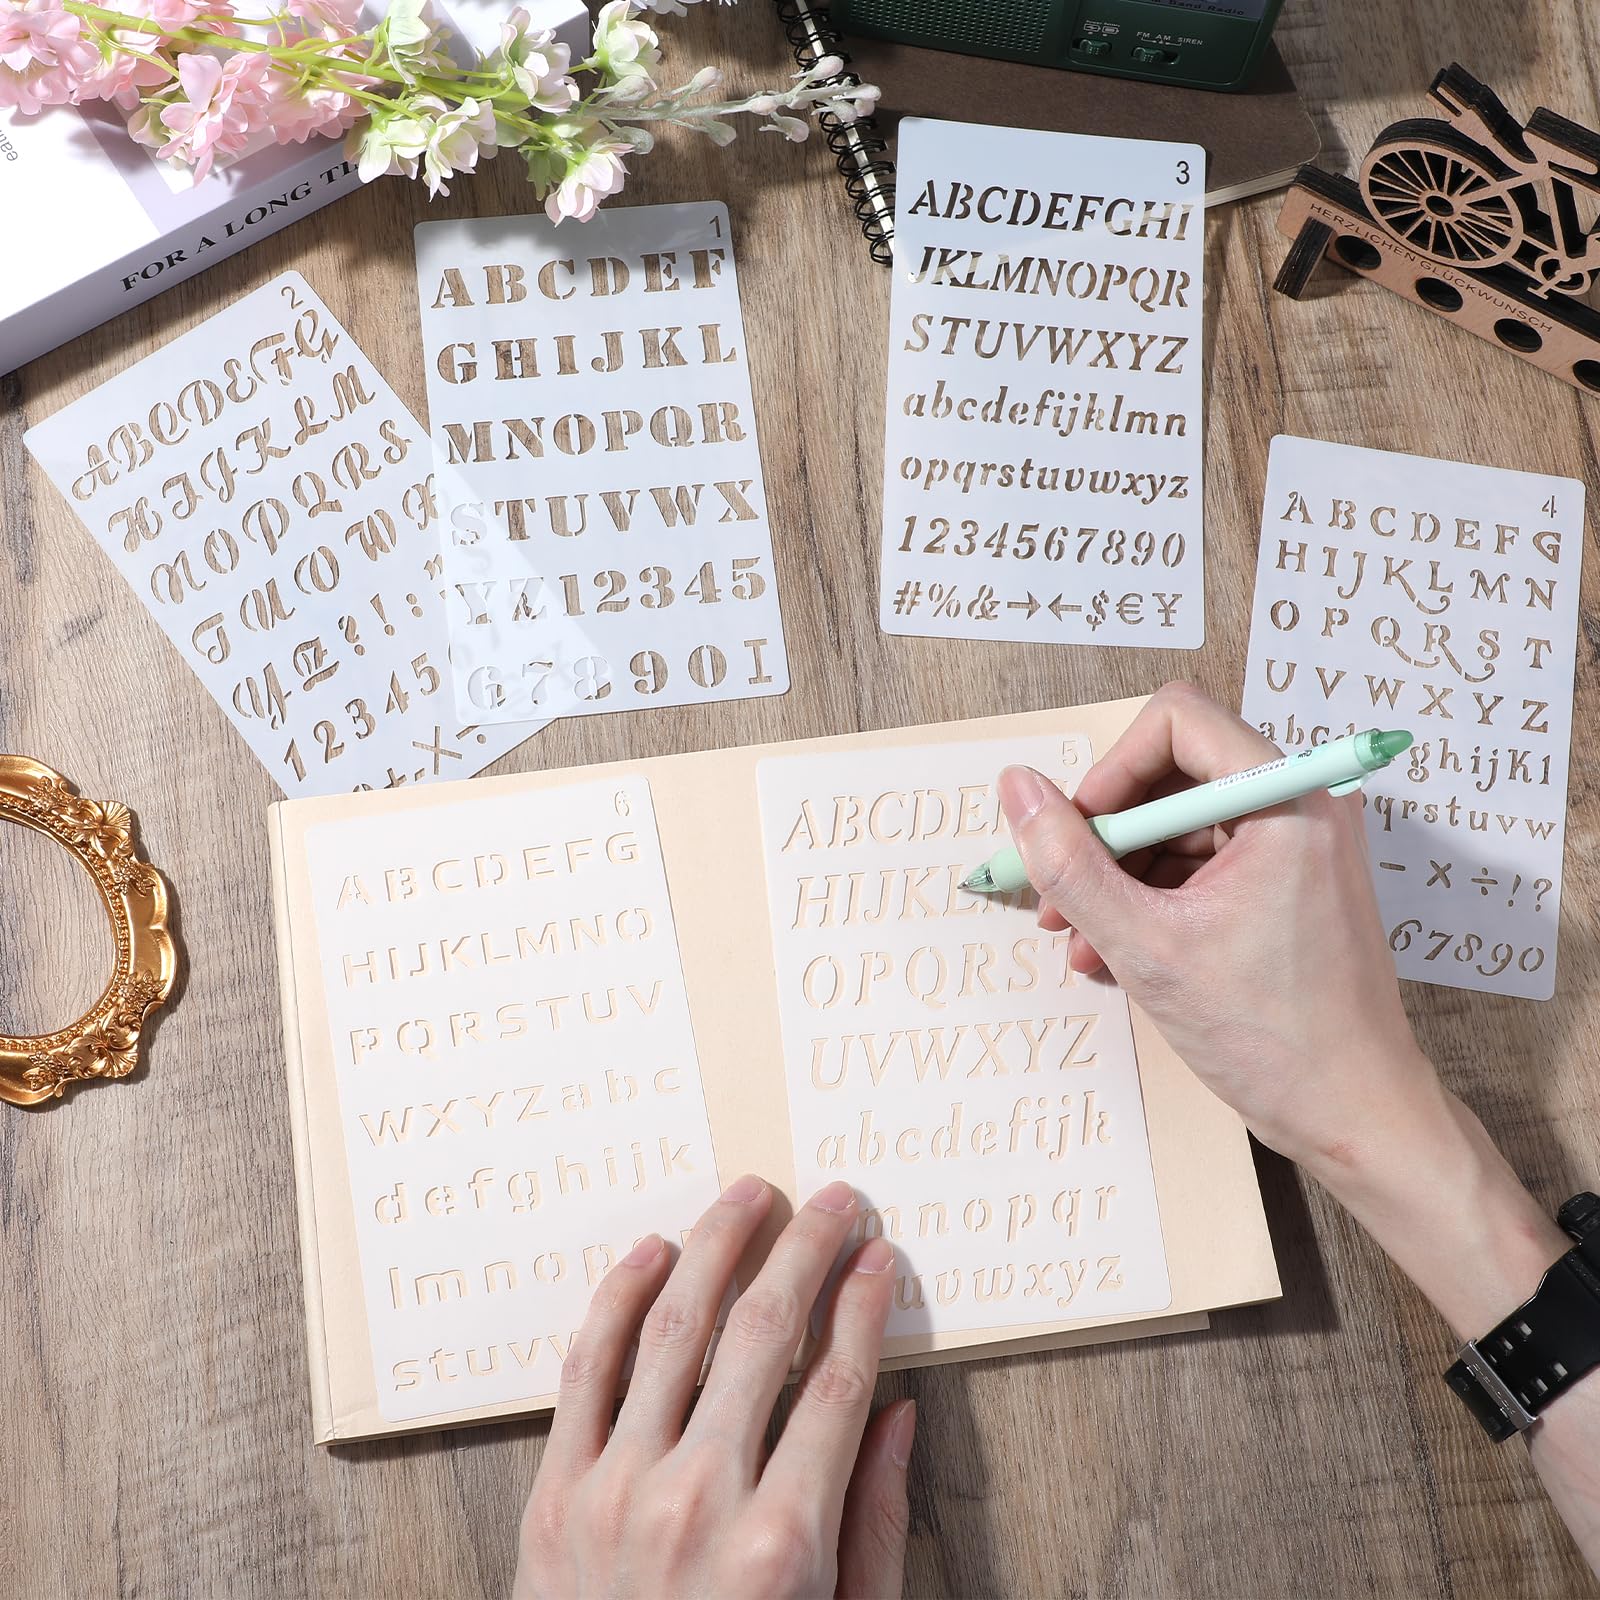 FOR A LONG
FM AM SIREN
HERZLICHEN GLÜCKWUNSCH
2
ABCDEFG
HIJKLM
NOPQRS
TUVWX
YZ?!:
12345
1
ABCDEF
GHIJKL
MNOPQR
STUVWX
YZ12345
67890I
3
ABCDEFGHI
JKLMNOPQR
STUVWXYZ
abcdefijklmn
opqrstuvwxyz
1234567890
#%&→←$€¥
4
ABCDEFG
HIJKLMN
OPQRST
UVWXYZ
abcd ghijkl
qrstuvw
-×÷!?
67890
6
ABCDEFG
HIJKLMNO
PQRSTUV
WXYZabc
defghijk
lmnop
stuv
5
ABCDE
HIJKLM
OPQRST
UVWXYZ
abcdefijk
mnopqr
uvwxyz